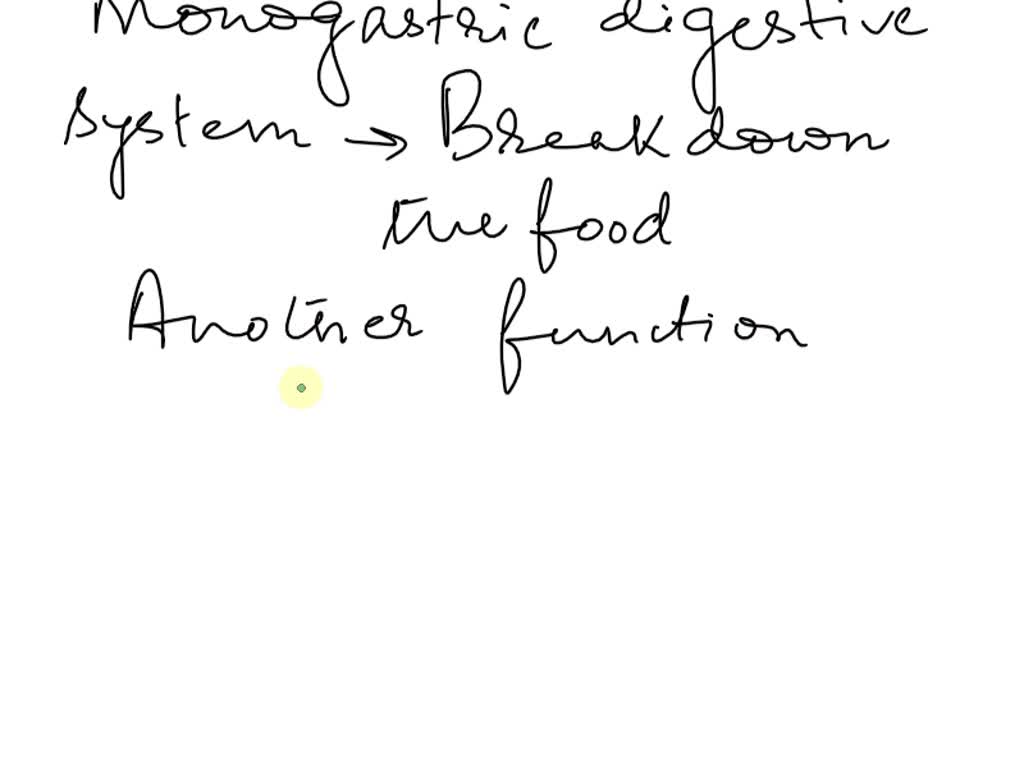 Monogastric digestive
system → Breakdown
the food
Another function